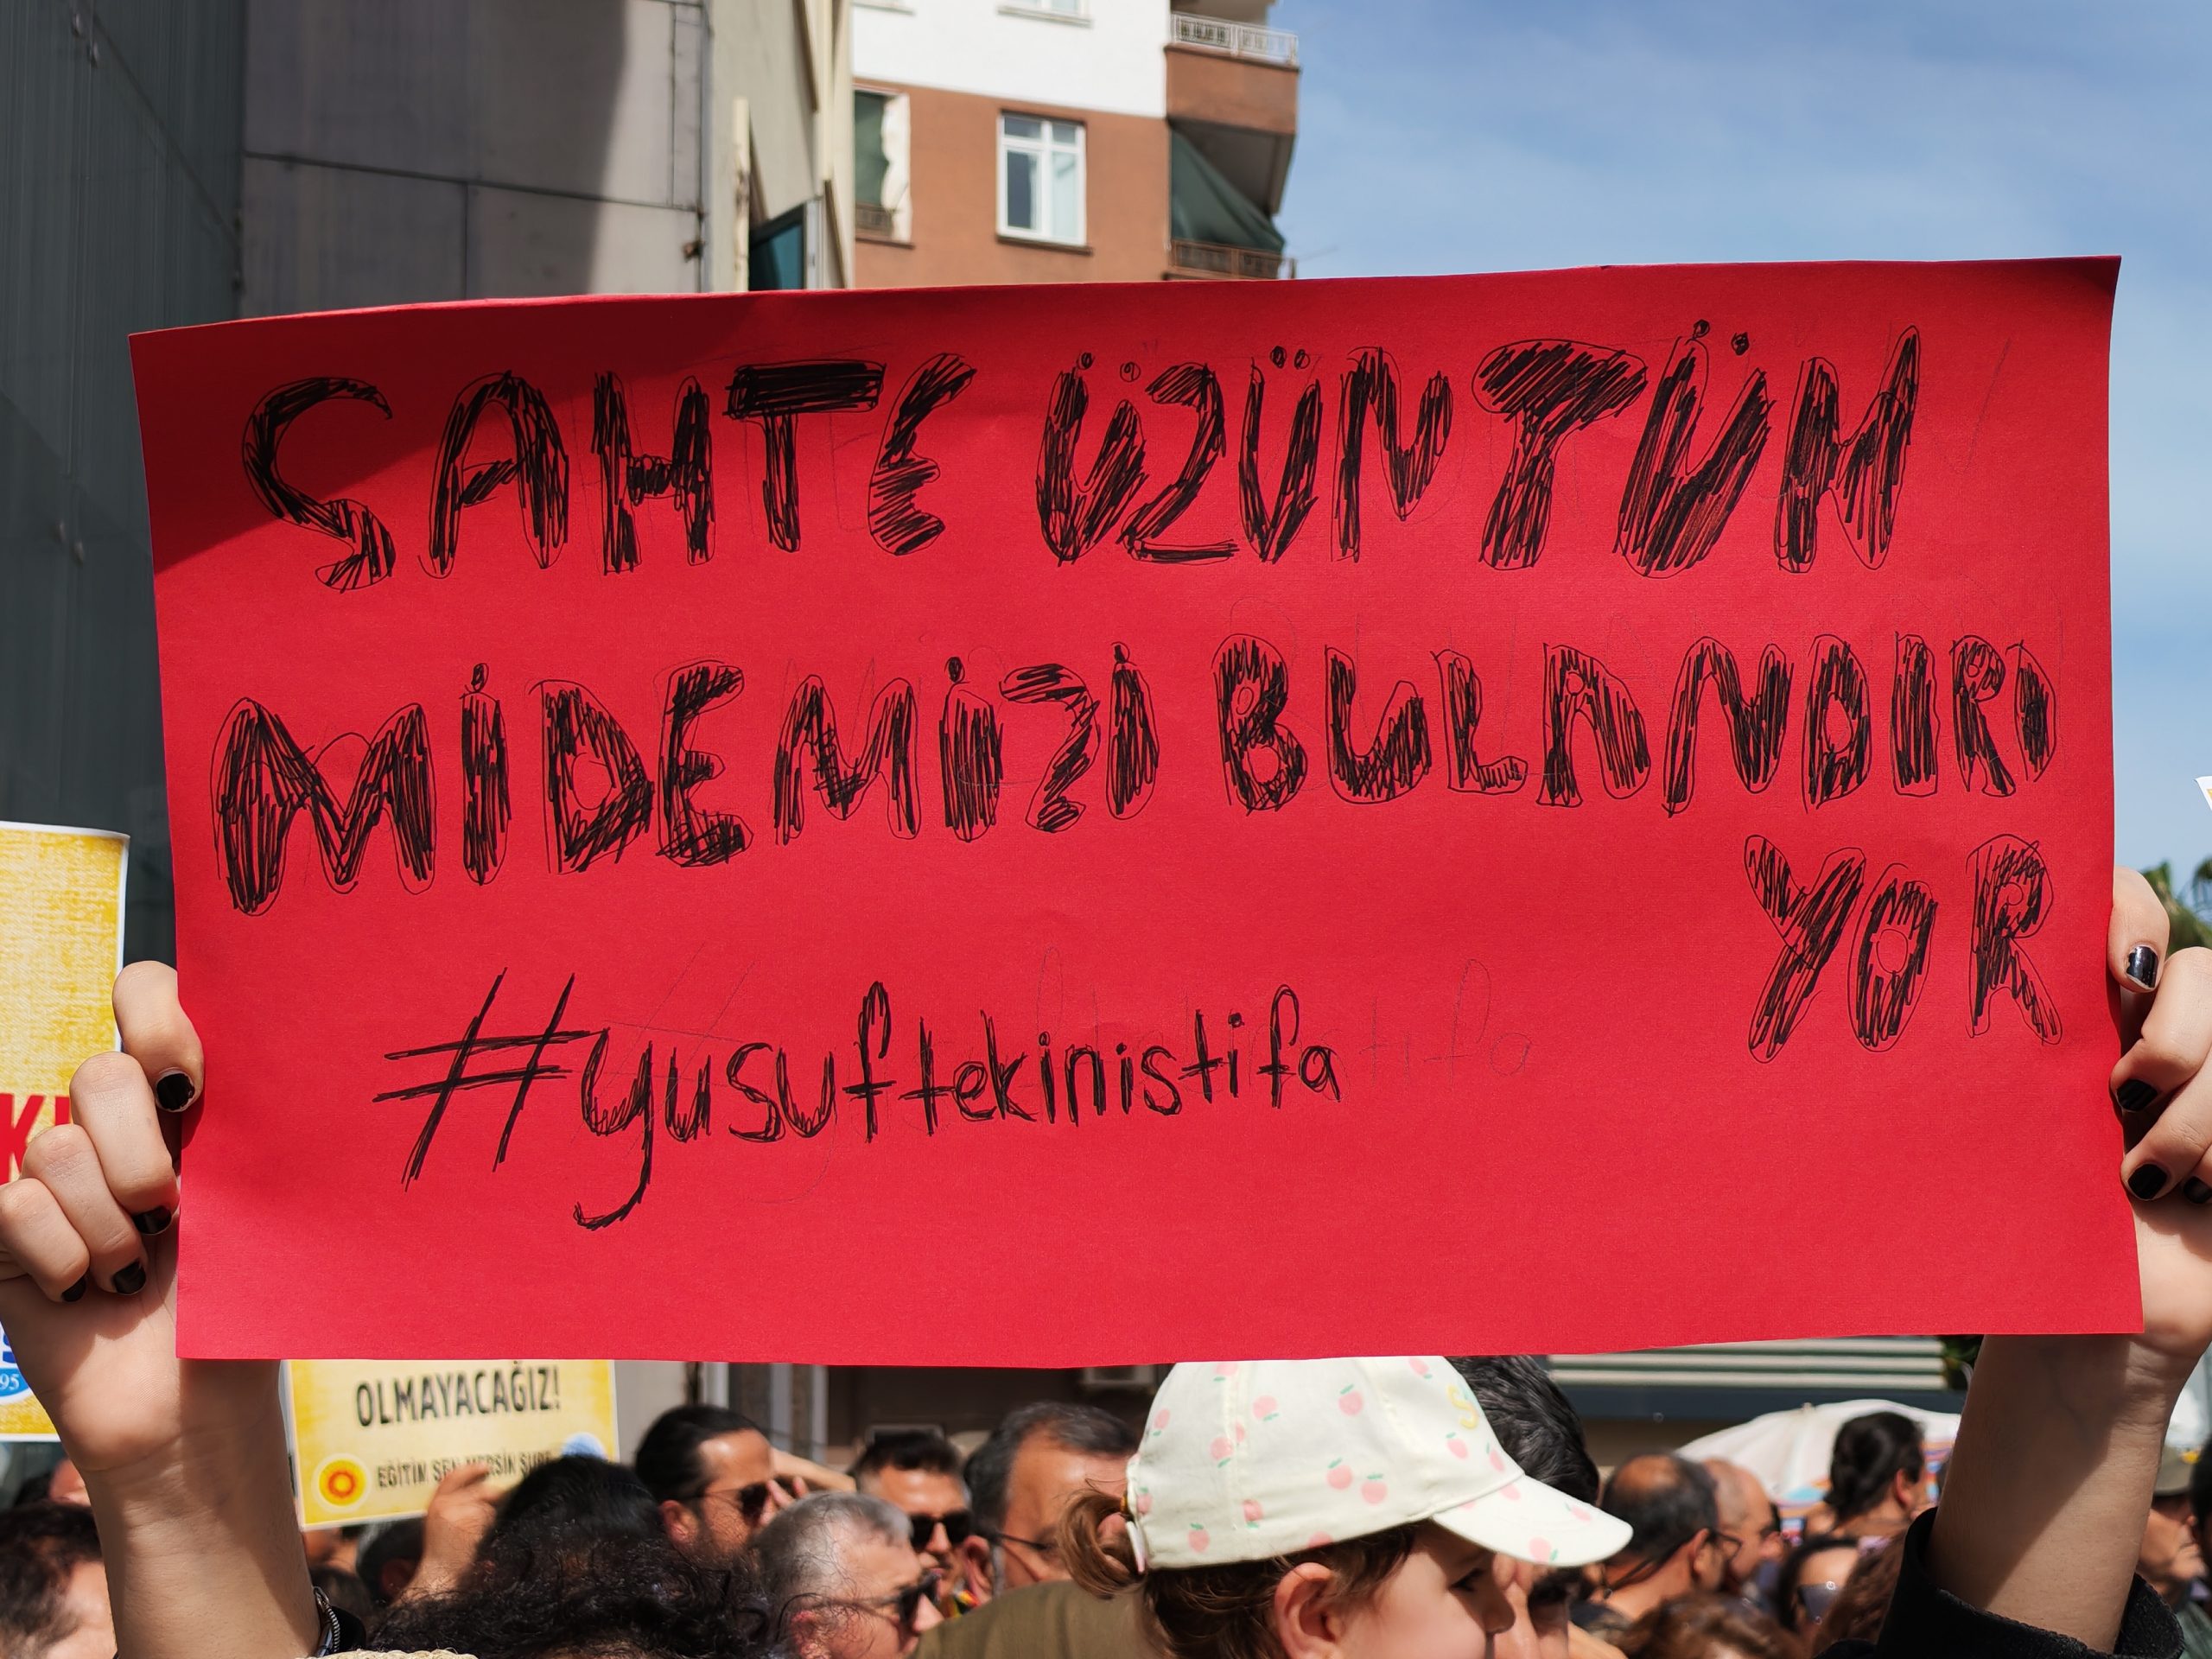 SAHTE ÜZÜNTÜN
MİDEMİZİ BULANDIRI
YOR
#yusuftekinistifa
OLMAYACAĞIZ!
EĞİTİM SEN MERSİN ŞUBE
95